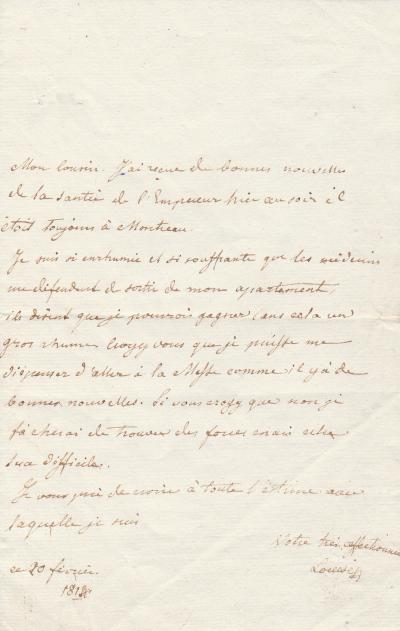 Mon Cousin. J'ai reçue de bonnes nouvelles
de la santée de l'Empereur hier au soir il
étoit toujours à Montreau.
Je suis si enrhumée et si souffrante que les médecins
me défendent de sortir de mon apartement,
ils disent que je pourrois gagner sans cela un
gros rhume Croyez vous que je puisse me
dispenser d'aller à la Messe comme il y a de
bonnes nouvelles. Si vous croyez que non je
tâcherai de trouver des forces mais cela
sera difficile.
Je vous prie de croire à toute l'estime avec
laquelle je suis
Votre très affectionnée
Louise
ce 20 février.
1814